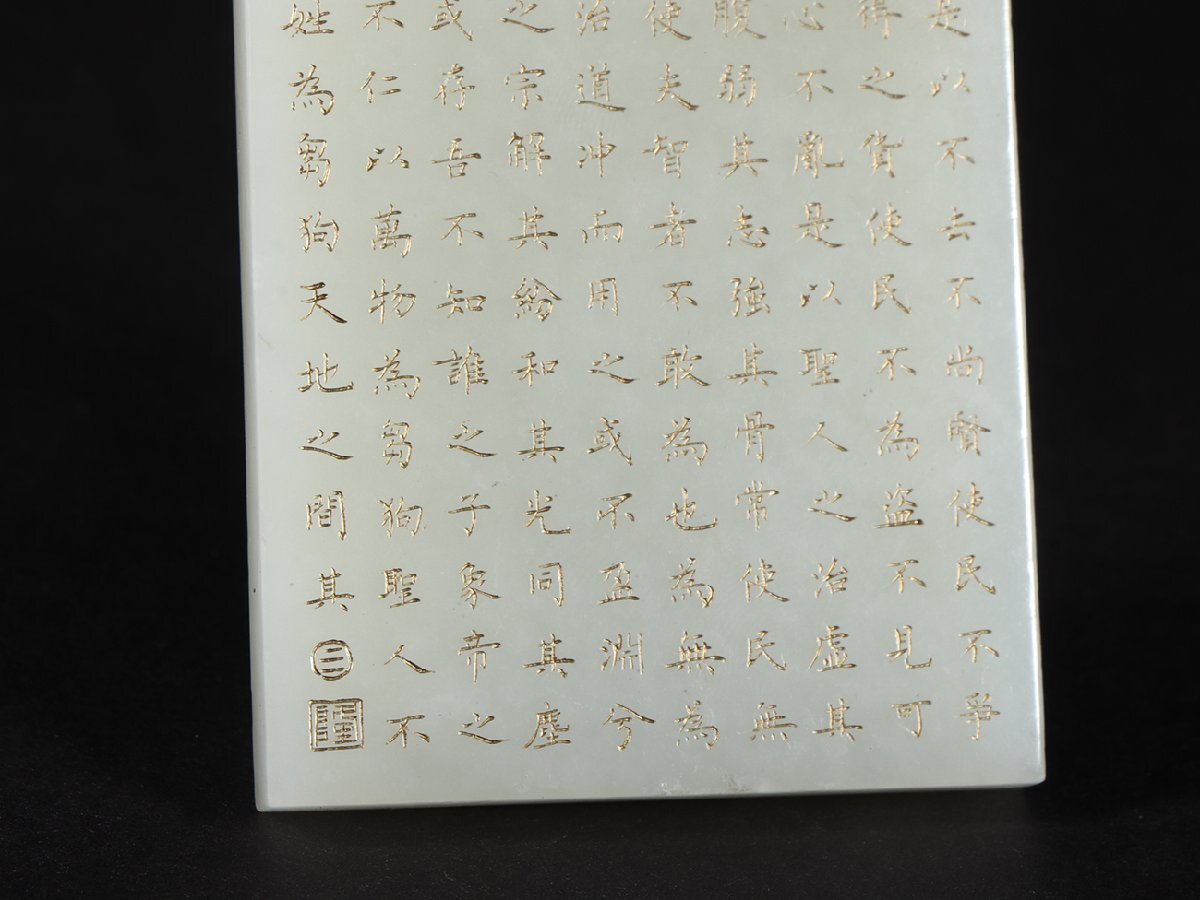 是以不去不尚賢使民不爭
得之貨使民不為盜不見可
心不亂是以聖人之治虛其
腹弱其志強其骨常使民無
使夫智者不敢為也為無為
治道冲而用之或不盈淵兮
之宗解其紛和其光同其塵
或存吾不知誰之子象帝之
不仁以萬物為芻狗聖人不
姓為芻狗天地之間其